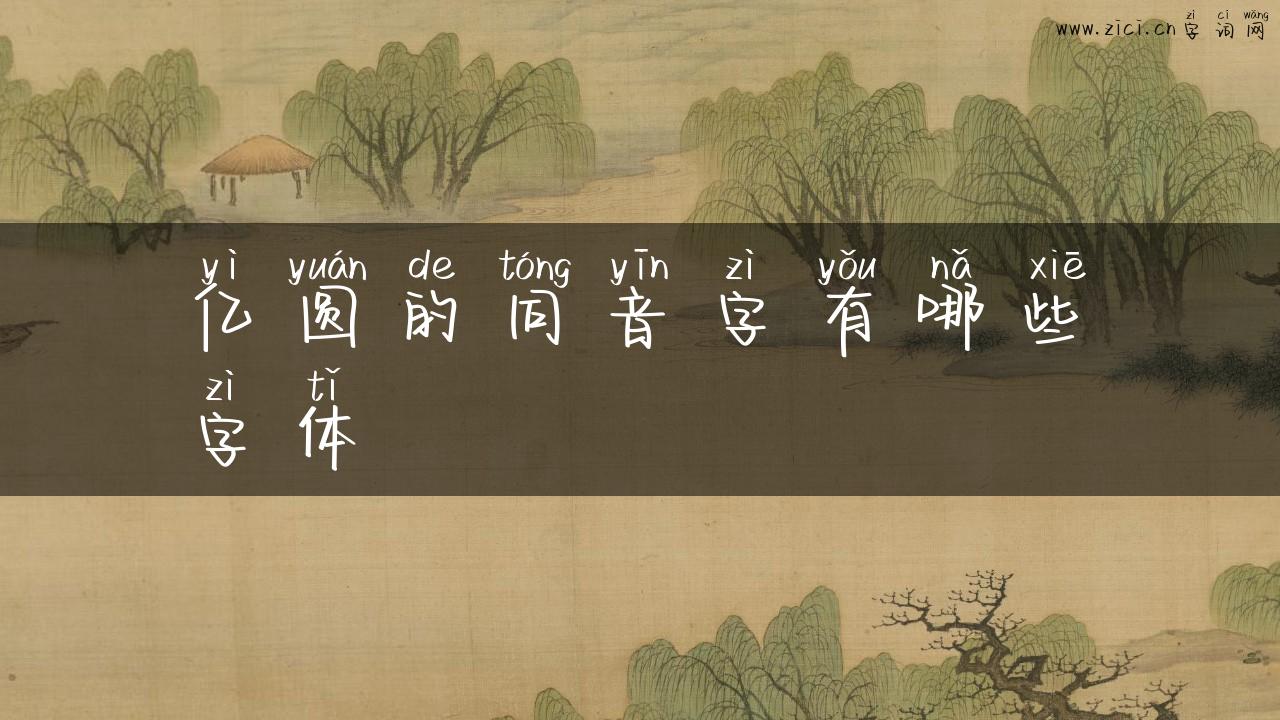 zì cí wǎng
www.zici.cn 字词网
yì yuán de tóng yīn zì yǒu nǎ xiē
亿圆的同音字有哪些
zì tǐ
字体